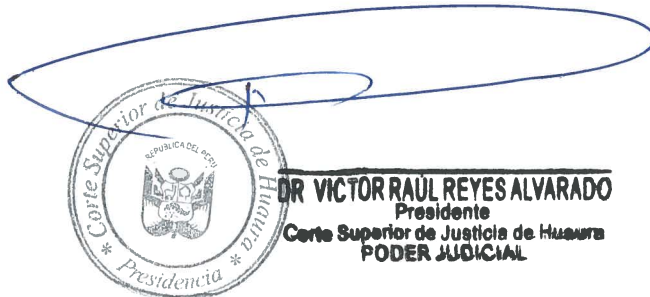 Corte Superior de Justicia de Huaura
REPUBLICA DEL PERU
* Presidencia *
DR VICTOR RAÚL REYES ALVARADO
Presidente
Corte Superior de Justicia de Huaura
PODER JUDICIAL